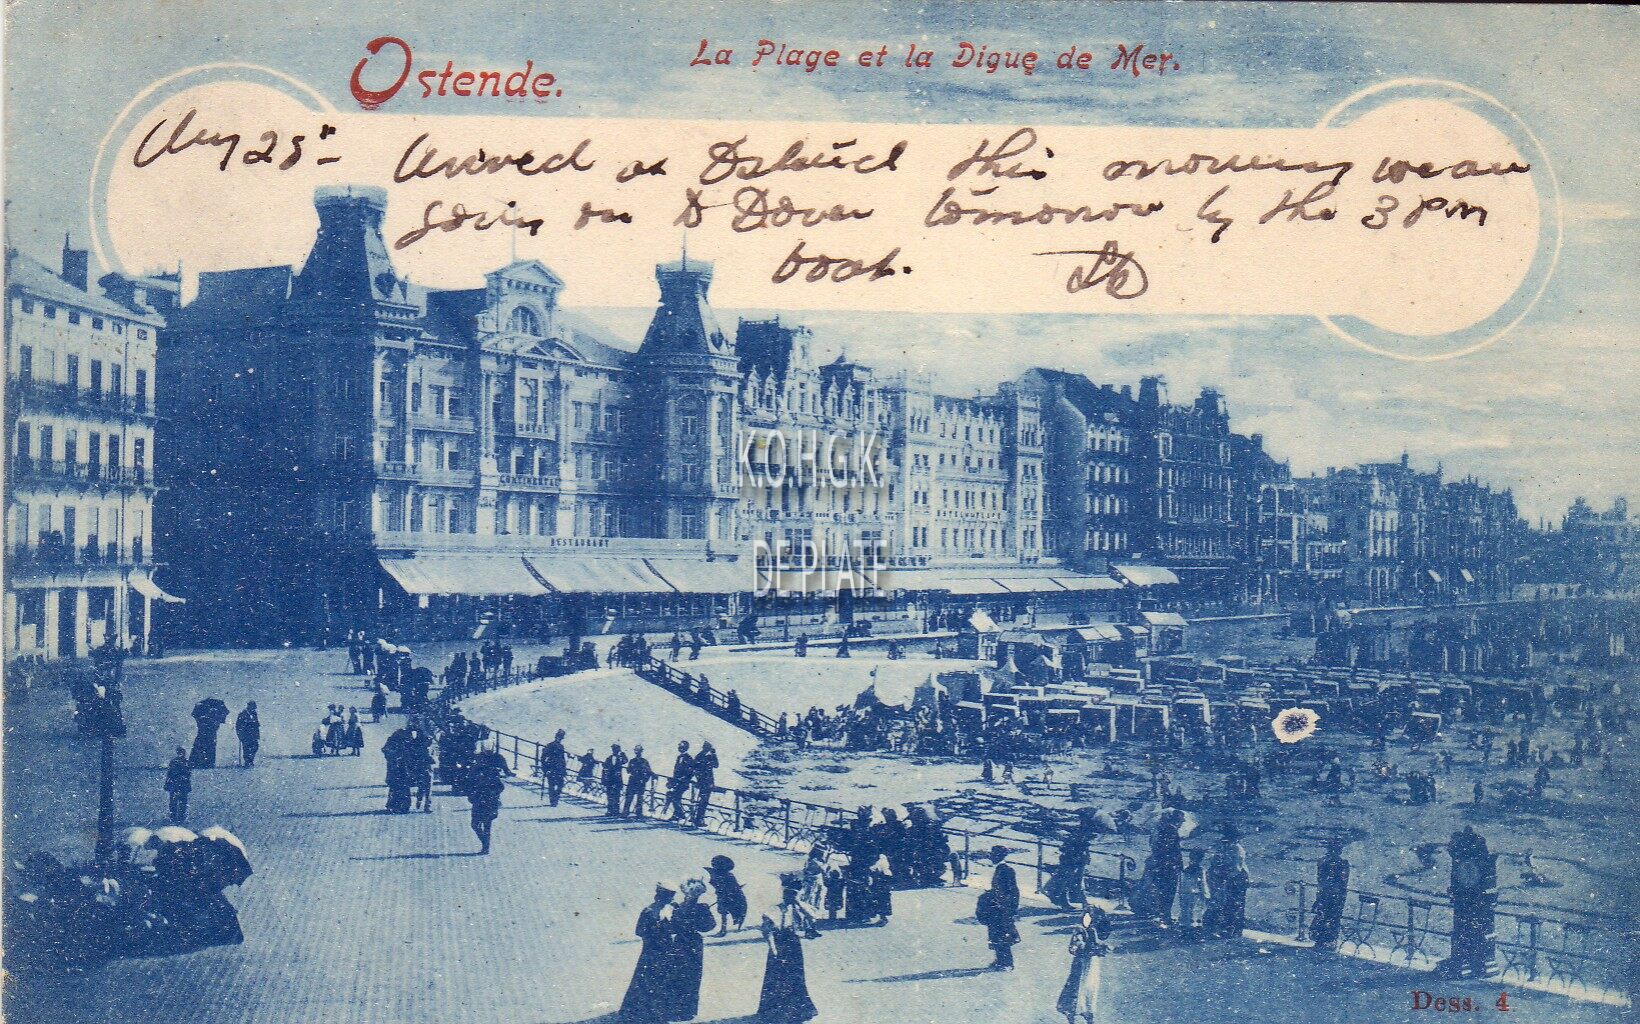 Ostende.
La Plage et la Digue de Mer.
Aug 25th Arrived at Ostend this morning we are
going on to Dover tomorrow by the 3 pm
boat.
HOTEL
CONTINENTAL
RESTAURANT
K.O.H.G.K.
DE PLATE
Dess. 4